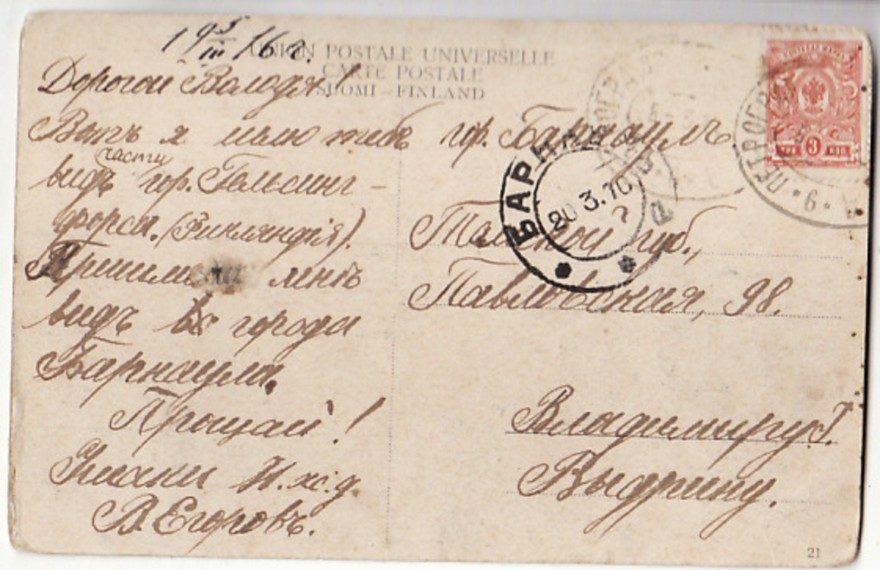 19 5/III 16 г.
UNION POSTALE UNIVERSELLE
CARTE POSTALE
SUOMI - FINLAND
Дорогой Володя!
Вотъ я шлю тебѣ
видъ части гор. Гельсинг-
форса. (Финляндія).
Пришли мнѣ
видъ города
Барнаула.
Прощай!
В. Егоровъ.
гор. Барнаулъ
Томской губ.,
Павловская, 98.
Владимиру Г.
Выдрину.
БАРНАУЛ
20.3.16
ПЕТРОГРАД
3 КОП
21